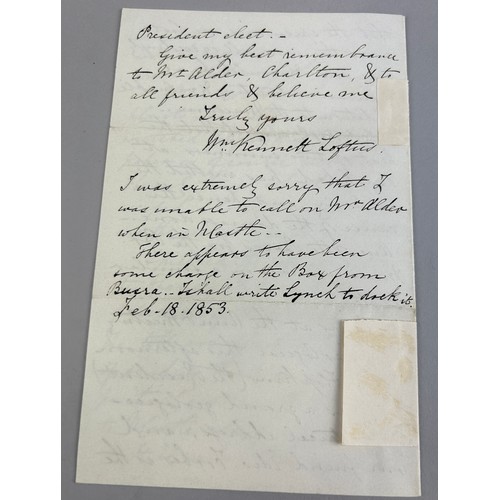 President elect. –
Give my best remembrance
to Mr Alder, Charlton, & to
all friends & believe me
Truly yours
Wm Kennett Loftus.
I was extremely sorry that I
was unable to call on Mr Alder
when in NCastle. –
There appears to have been
some charge on the Box from
Busra. – I shall write Lynch to dock it.
Feb. 18. 1853.